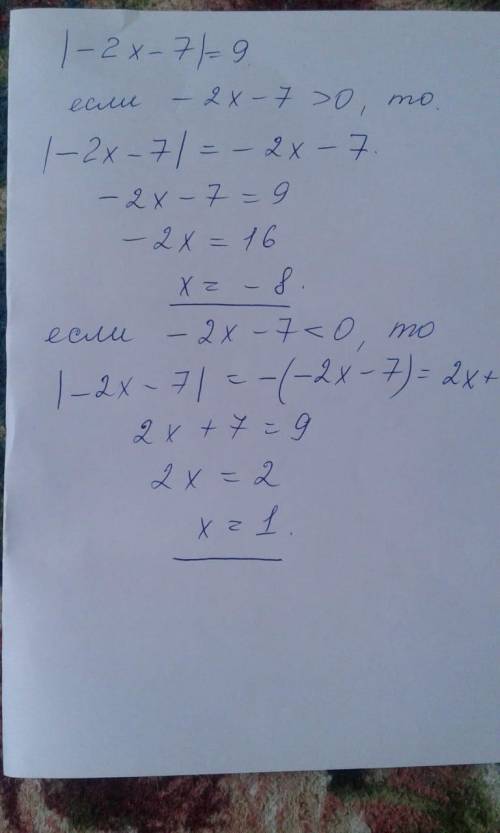 |-2x-7|=9
если -2x-7>0, то.
|-2x-7|=-2x-7.
-2x-7=9
-2x=16
x=-8.
если -2x-7<0, то
|-2x-7|=-(-2x-7)=2x+
2x+7=9
2x=2
x=1.